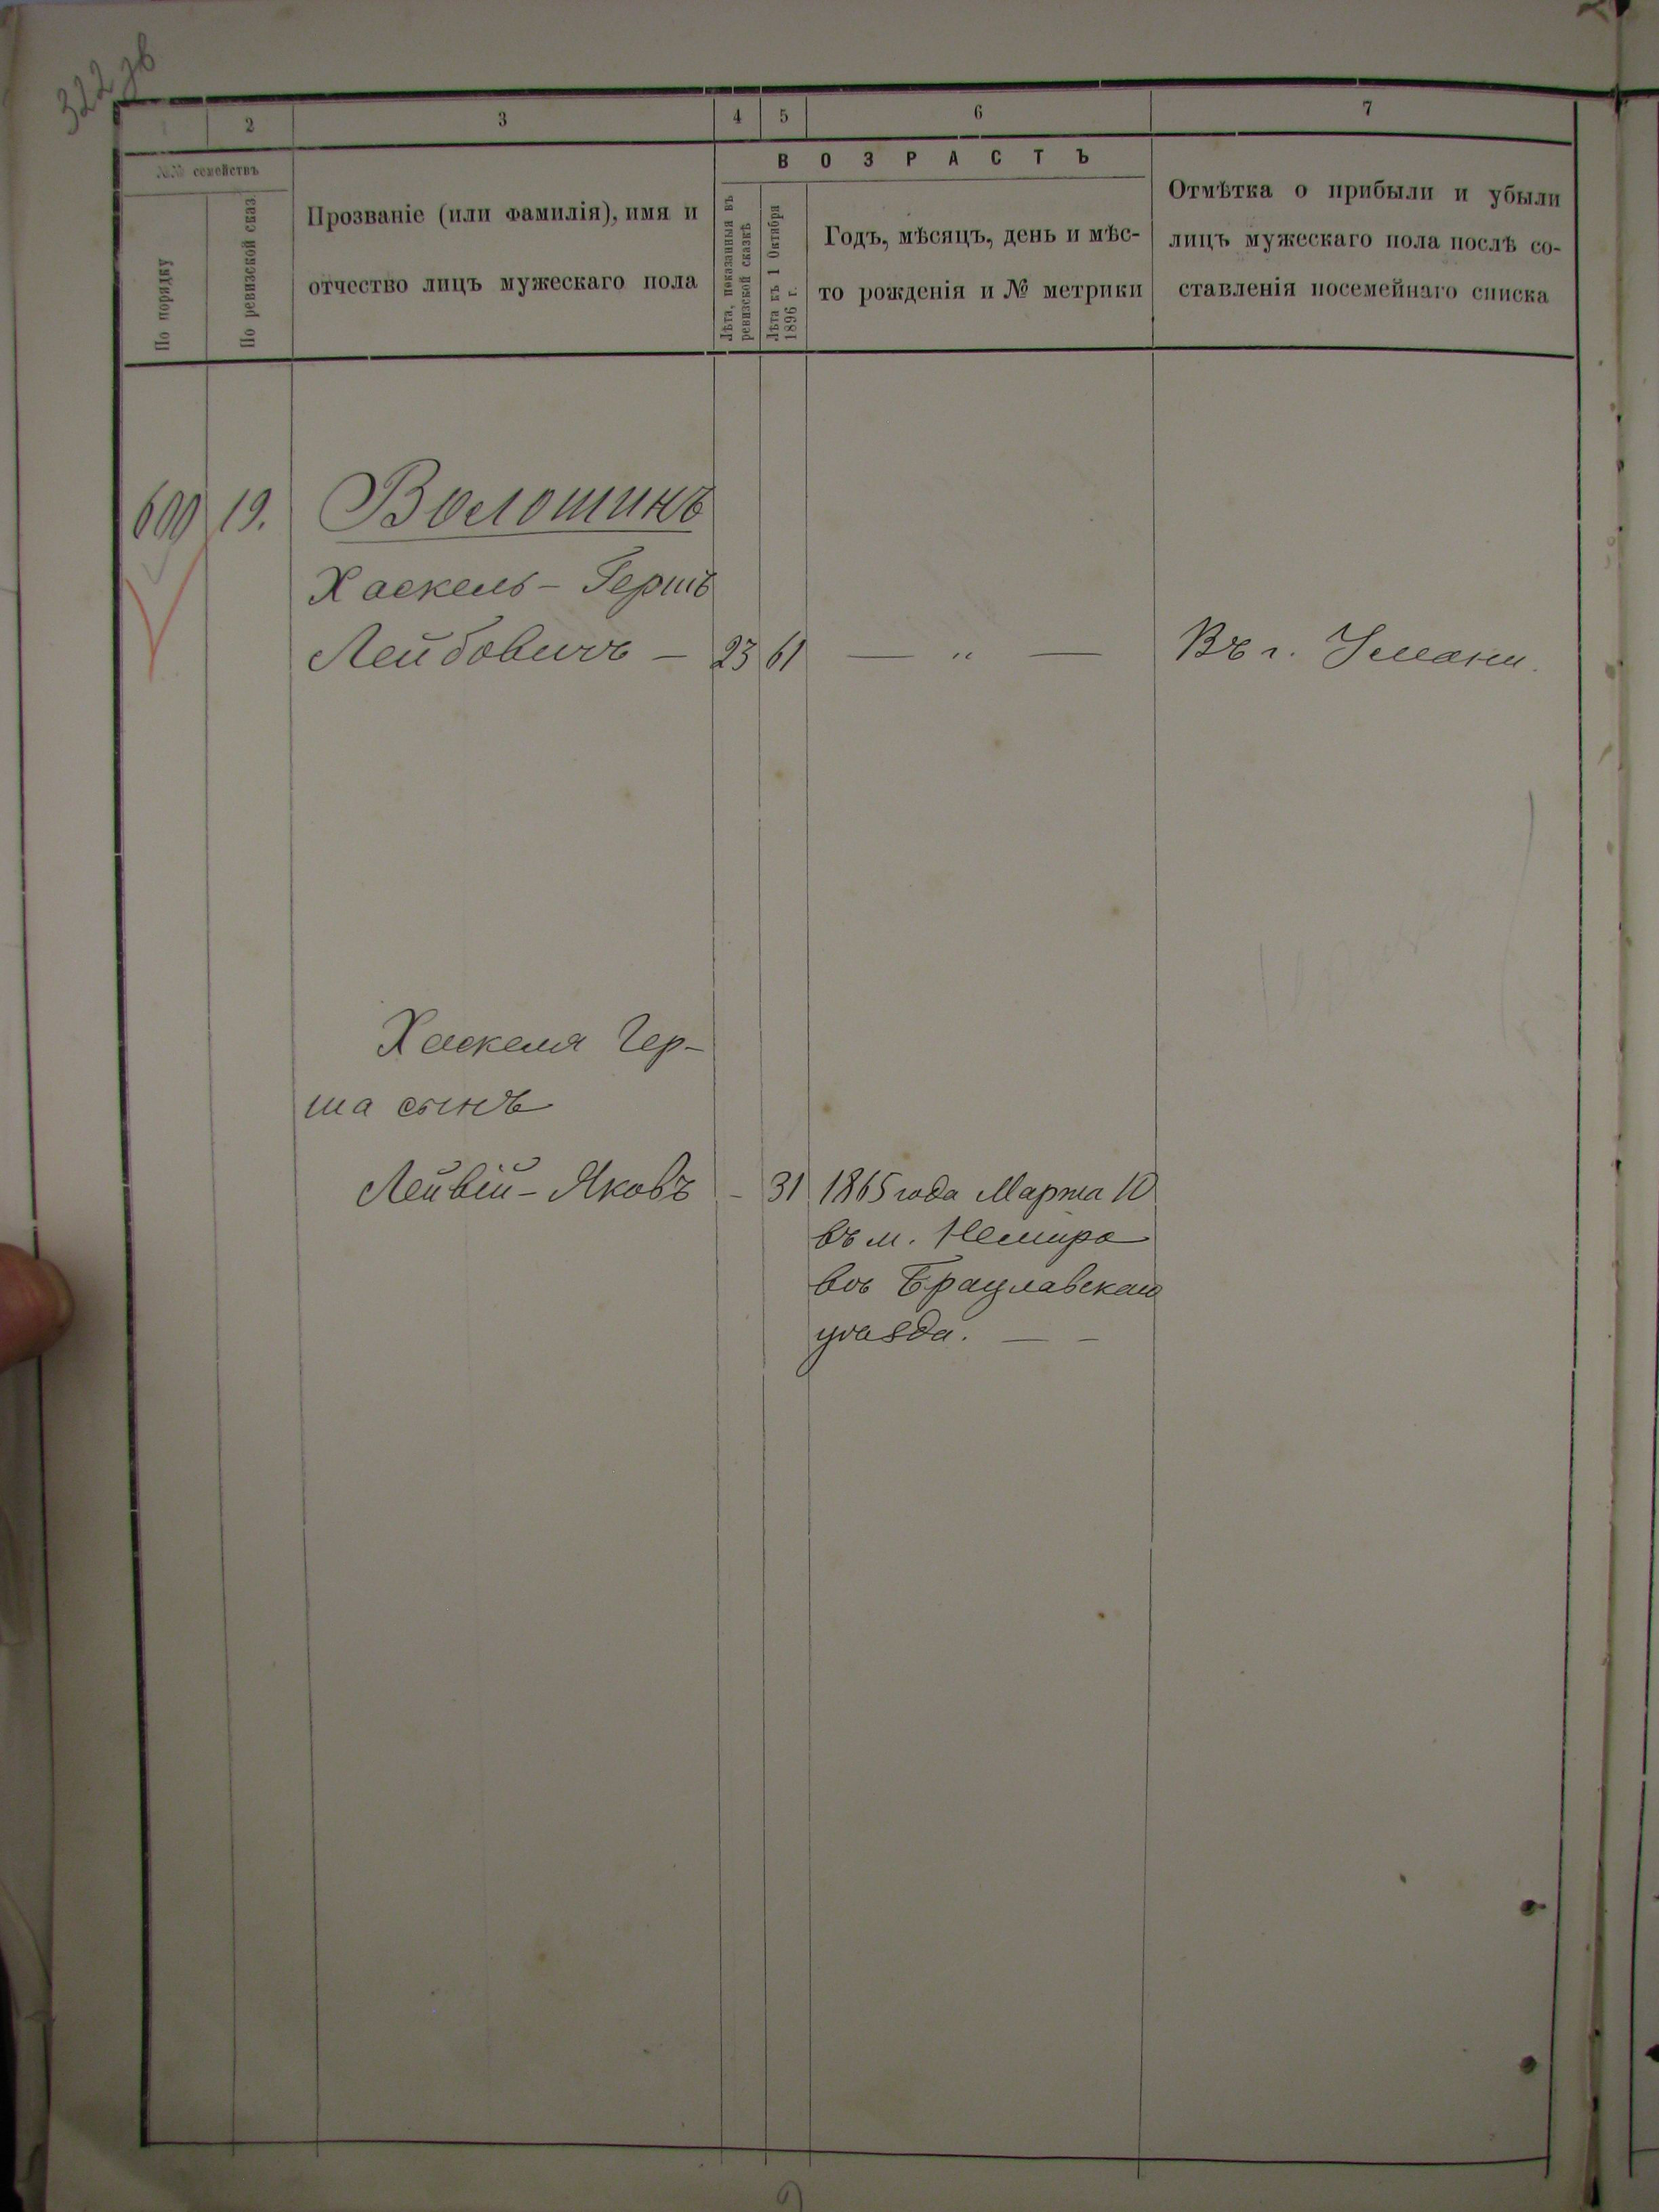 322 зв
2 3 4 5 6 7
№№ семействъ
По порядку
По ревизской сказ.
Прозваніе (или фамилія), имя и
отчество лицъ мужескаго пола
ВОЗРАСТЪ
Лѣта, показанныя въ
ревизской сказкѣ
Лѣта къ 1 Октября
1896 г.
Годъ, мѣсяцъ, день и мѣс-
то рожденія и № метрики
Отмѣтка о прибыли и убыли
лицъ мужескаго пола послѣ со-
ставленія посемейнаго списка
600 19. Волошинъ
Хаскель - Гершъ
Лейбовичъ - 23 61 — " — Въ г. Умани.
Хаскеля Гер-
ша сынъ
Лейвій - Яковъ - 31 1865 года Марта 10
въ м. Немиро
вѣ Брацлавскаго
уѣзда. — -